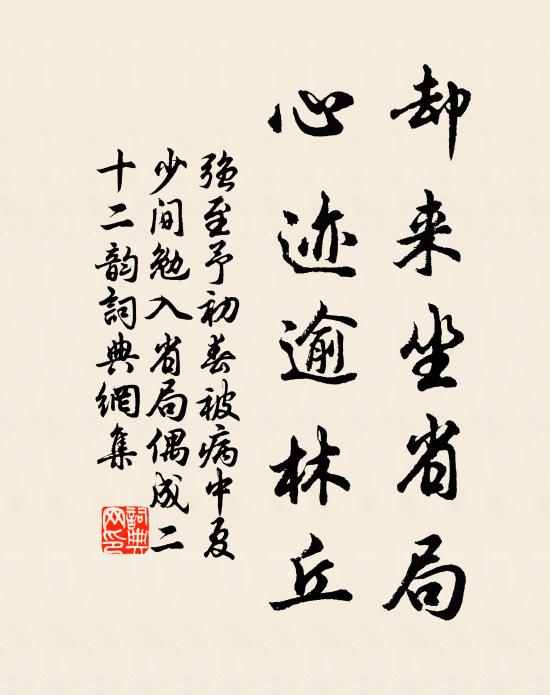 却来坐省局
心迹逾林丘
强至予初春被病中夏
少间勉入省局偶成二
十二韵詞典網集
詞典网印